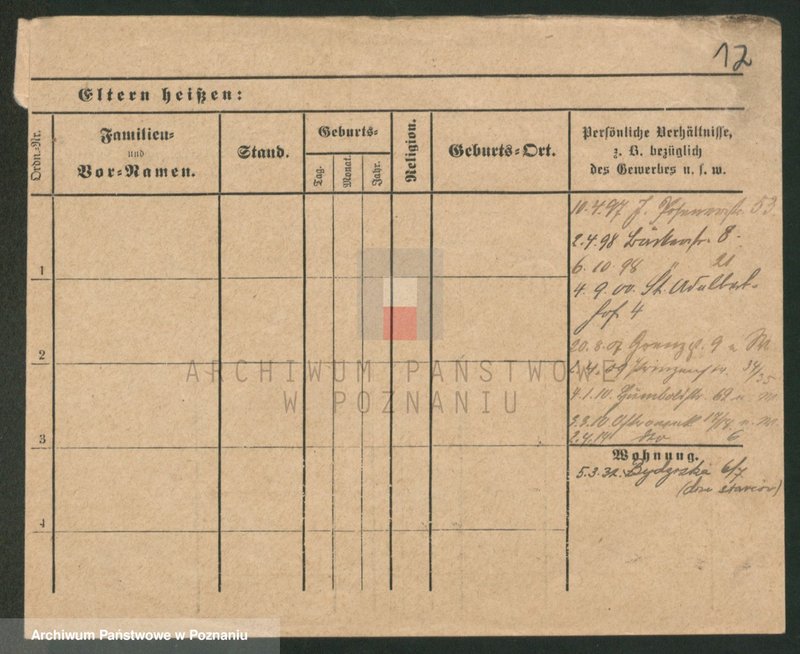 12
Eltern heißen:
Ordn.-Nr.
Familien-
und
Vor-Namen.
Stand.
Geburts-
Tag.
Monat.
Jahr.
Religion.
Geburts-Ort.
Persönliche Verhältnisse,
z. B. bezüglich
des Gewerbes u. s. w.
10.4.97 J. 53
2.4.98 8
6.10 98 " 21
4.9.00. St. Adalbert-
hof 4
9 u. M.
34/35
4.1.10. Humboldtstr. u. M
3.3.10 u. M.
2.4.14 dto 6
1
2
3
4
Wohnung.
5.3.32. Bydgoska 6/7
(dom starców)
ARCHIWUM PAŃSTWOWE
W POZNANIU
Archiwum Państwowe w Poznaniu